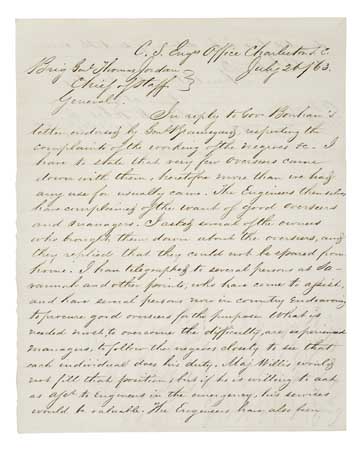 C. S. Engrs Office Charleston S.C.
July 26 /63.
Brig Genl Thomas Jordan
Chief of Staff
General.
In reply to Gov Bonham's
letter, endorsed by Genl respecting the
complaints of the working of the negroes &c. I
have to state that very few overseers came
down with them, heretofore more than we had
any use for usually came. The Engineers themselves
have complained of the want of good overseers
and managers. I asked several of the owners
who brought them down about the overseers, and
they replied that they could not be spared from
home. I have telegraphed to several persons at Sa-
vannah and other points, who have come to assist,
and have several persons now in country endeavoring
to procure good overseers for the purpose. What is
needed most to overcome the difficulty, are experienced
managers, to follow the negroes closely to see that
each individual does his duty. Maj Willis would
not fill that position, but if he is willing to act
as asst to Engineers in the emergency, his services
would be valuable. The Engineers have also been